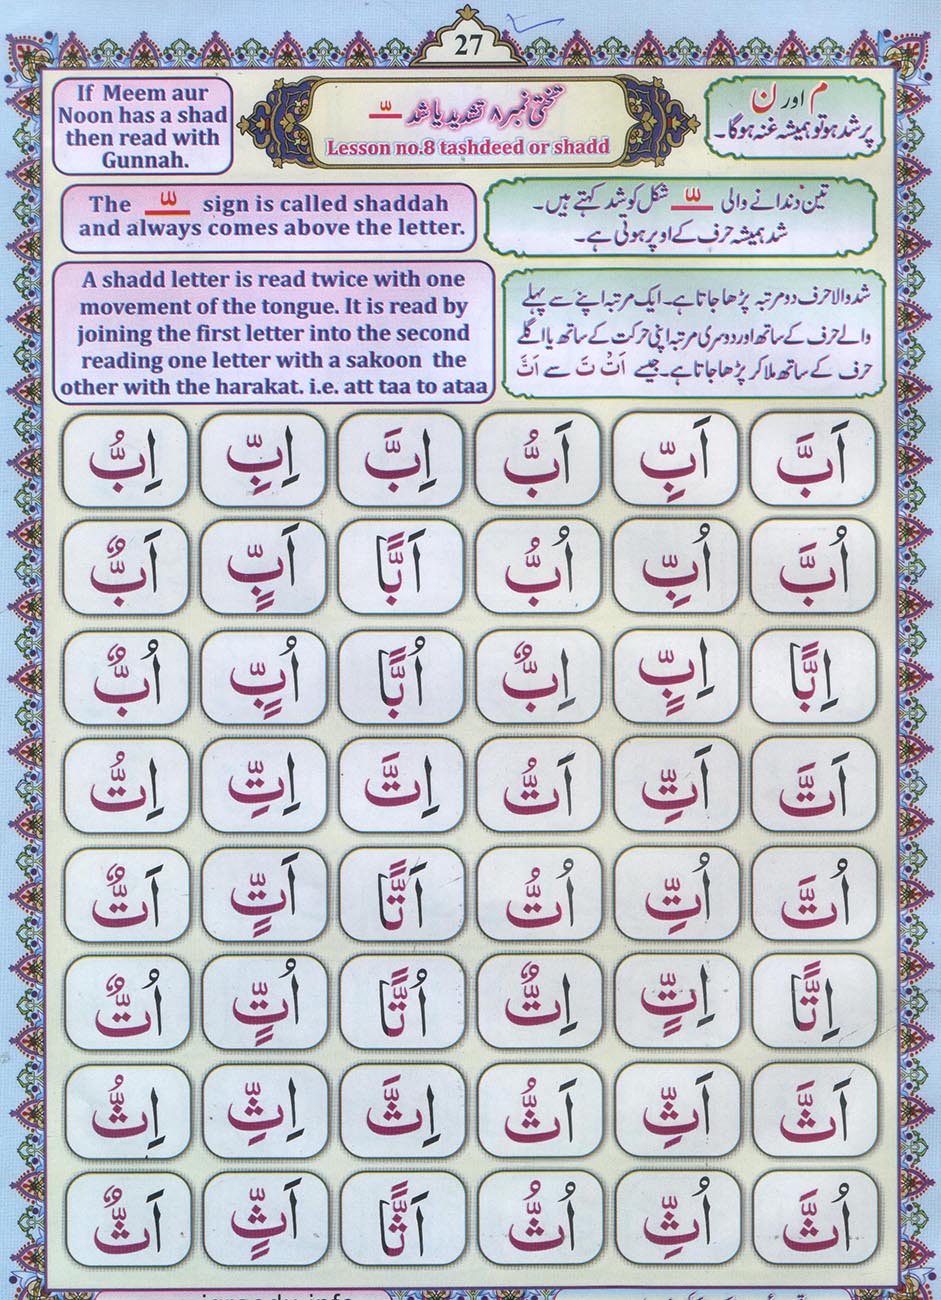 27
If Meem aur
Noon has a shad
then read with
Gunnah.
تختی نمبر ۸ تشدید یا شد ـّ
Lesson no.8 tashdeed or shadd
م اور ن
پر شد ہو تو ہمیشہ غنہ ہوگا۔
The ـّ sign is called shaddah
and always comes above the letter.
تین دندانے والی ـّ شکل کو شد کہتے ہیں۔
شد ہمیشہ حرف کے اوپر ہوتی ہے۔
A shadd letter is read twice with one
movement of the tongue. It is read by
joining the first letter into the second
reading one letter with a sakoon the
other with the harakat. i.e. att taa to ataa
شد والا حرف دو مرتبہ پڑھا جاتا ہے۔ ایک مرتبہ اپنے سے پہلے
والے حرف کے ساتھ اور دوسری مرتبہ اپنی حرکت کے ساتھ یا اگلے
حرف کے ساتھ ملا کر پڑھا جاتا ہے۔ جیسے اَتْ تَ سے اَتَّ
اَبَّ اَبِّ اَبُّ اِبَّ اِبِّ اِبُّ
اُبَّ اُبِّ اُبُّ اَبًّا اَبٍّ اَبٌّ
اِبًّا اِبٍّ اِبٌّ اُبًّا اُبٍّ اُبٌّ
اَتَّ اَتِّ اَتُّ اِتَّ اِتِّ اِتُّ
اُتَّ اُتِّ اُتُّ اَتًّا اَتٍّ اَتٌّ
اِتًّا اِتٍّ اِتٌّ اُتًّا اُتٍّ اُتٌّ
اَثَّ اَثِّ اَثُّ اِثَّ اِثِّ اِثُّ
اُثَّ اُثِّ اُثُّ اَثًّا اَثٍّ اَثٌّ